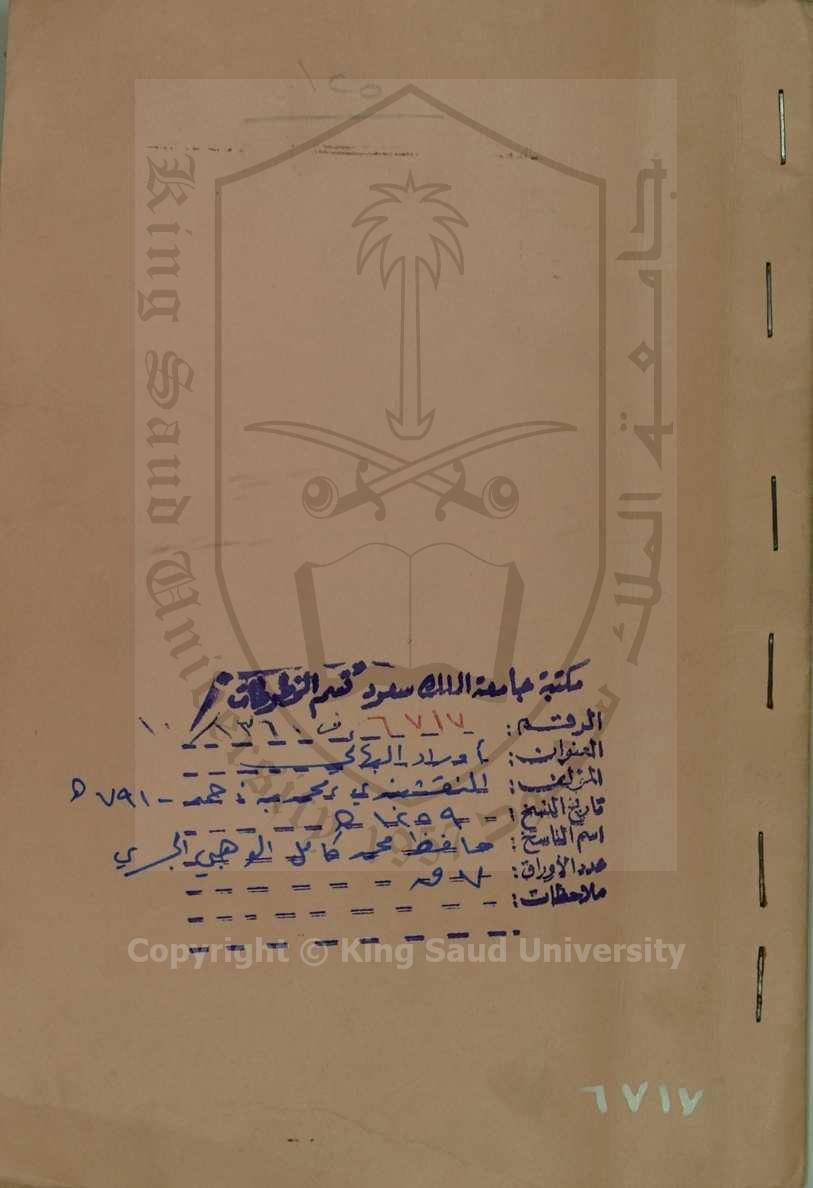 ١٢٥
King Saud University
جامعة الملك سعود
مكتبة جامعة الملك سعود "قسم المخطوطات"
الرقم: ٦٧١٧ ف ١٣٦٠/١٠
العنوان: أوراد البهائي
المؤلف: النقشبندي، محمد بن محمد - ٧٩١ هـ
تاريخ النسخ:
اسم الناسخ: حافظ محمد كامل الوهبي
عدد الأوراق: ق
ملاحظات:
Copyright © King Saud University
٦٧١٧